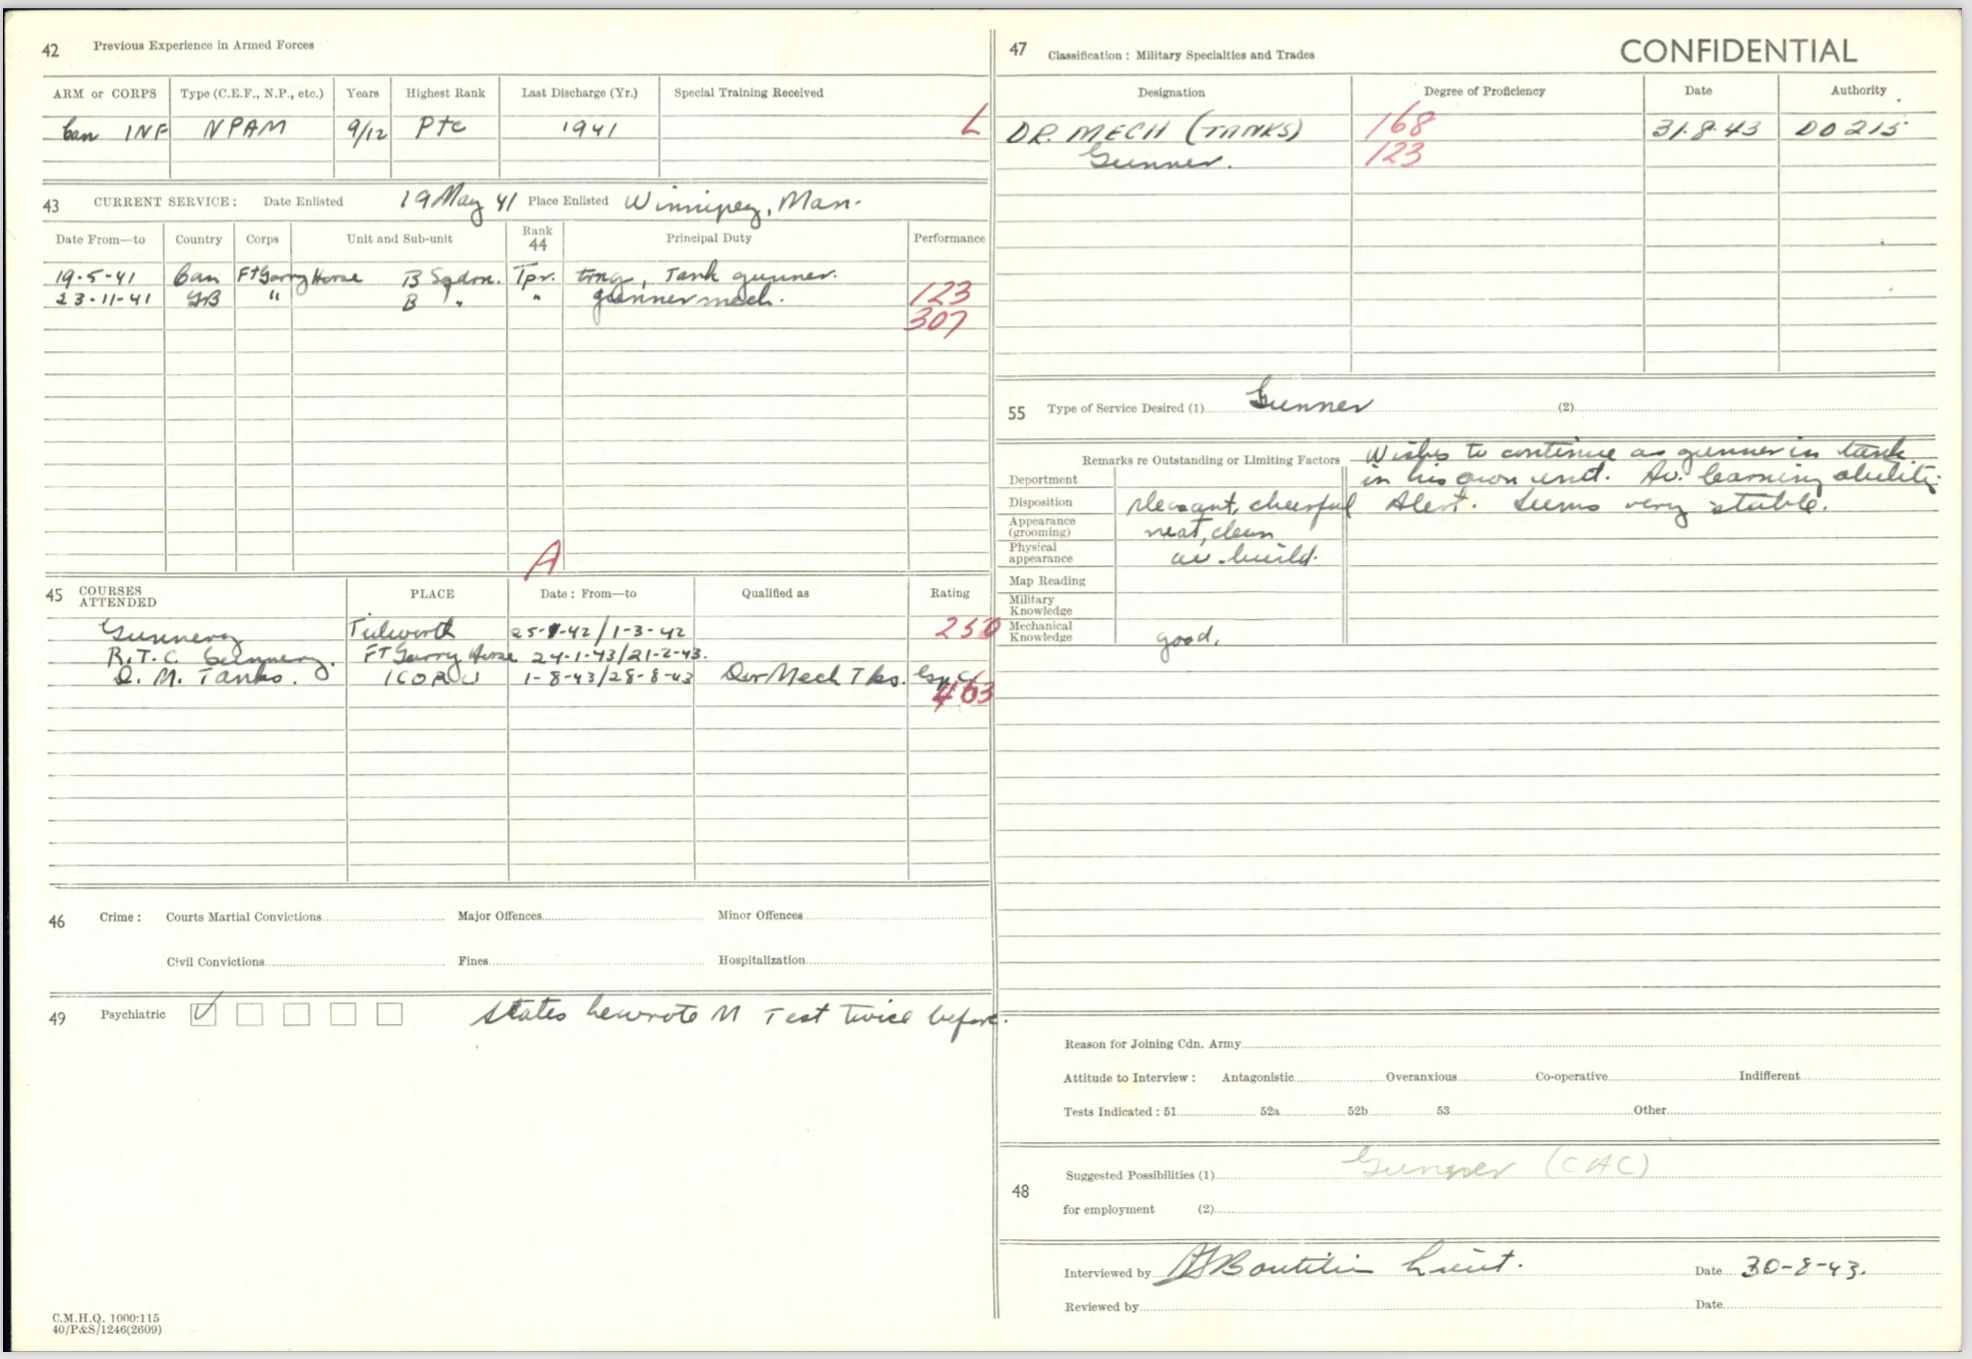 42 Previous Experience in Armed Forces
ARM or CORPS Type (C.E.F., N.P., etc.) Years Highest Rank Last Discharge (Yr.) Special Training Received
Can INF NPAM 9/12 Pte 1941 L
43 CURRENT SERVICE: Date Enlisted 19 May 41 Place Enlisted Winnipeg, Man.
Date From—to Country Corps Unit and Sub-unit Rank 44 Principal Duty Performance
19-5-41 Can Ft Garry Horse B Sqdrn. Tpr. trng, Tank gunner.
23-11-41 GB " B " " gunner mech. 123
307
A
45 COURSES ATTENDED PLACE Date: From—to Qualified as Rating
Gunnery 1-3-42 250
R.T.C. Gunnery. FT Garry Horse 24-1-43/21-2-43.
D. M. Tanks. 1CORU 1-8-43/28-8-43 Dvr Mech Tks.
463
46 Crime: Courts Martial Convictions Major Offences Minor Offences
Civil Convictions Fines Hospitalization
49 Psychiatric States he wrote M Test twice before.
C.M.H.Q. 1000:115
40/P&S/1246(2609)
47 Classification: Military Specialties and Trades CONFIDENTIAL
Designation Degree of Proficiency Date Authority
DR. MECH (TANKS) 168 31.8.43 DO 215
Gunner. 123
55 Type of Service Desired (1) Gunner (2)
Remarks re Outstanding or Limiting Factors Wishes to continue as gunner in tank
in his own unit. Av. learning ability.
Alert. Seems very stable.
Deportment
Disposition pleasant, cheerful
Appearance (grooming) neat, clean
Physical appearance av. build.
Map Reading
Military Knowledge
Mechanical Knowledge good.
Reason for Joining Cdn. Army
Attitude to Interview: Antagonistic Overanxious Co-operative Indifferent
Tests Indicated: 51 52a 52b 53 Other
48 Suggested Possibilities (1) Gunner (CAC)
for employment (2)
Interviewed by Boutilier Lieut. Date 30-8-43.
Reviewed by Date